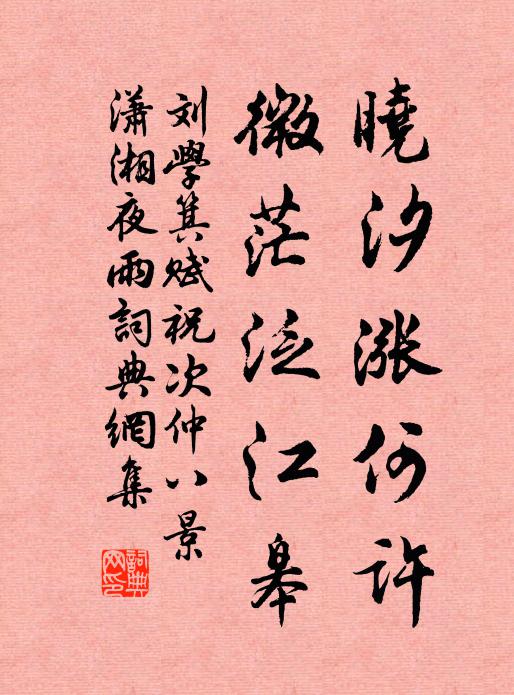 曉汐漲何許
微茫泛江皋
刘學箕賦祝次仲八景
瀟湘夜雨詞典網集
詞典网印